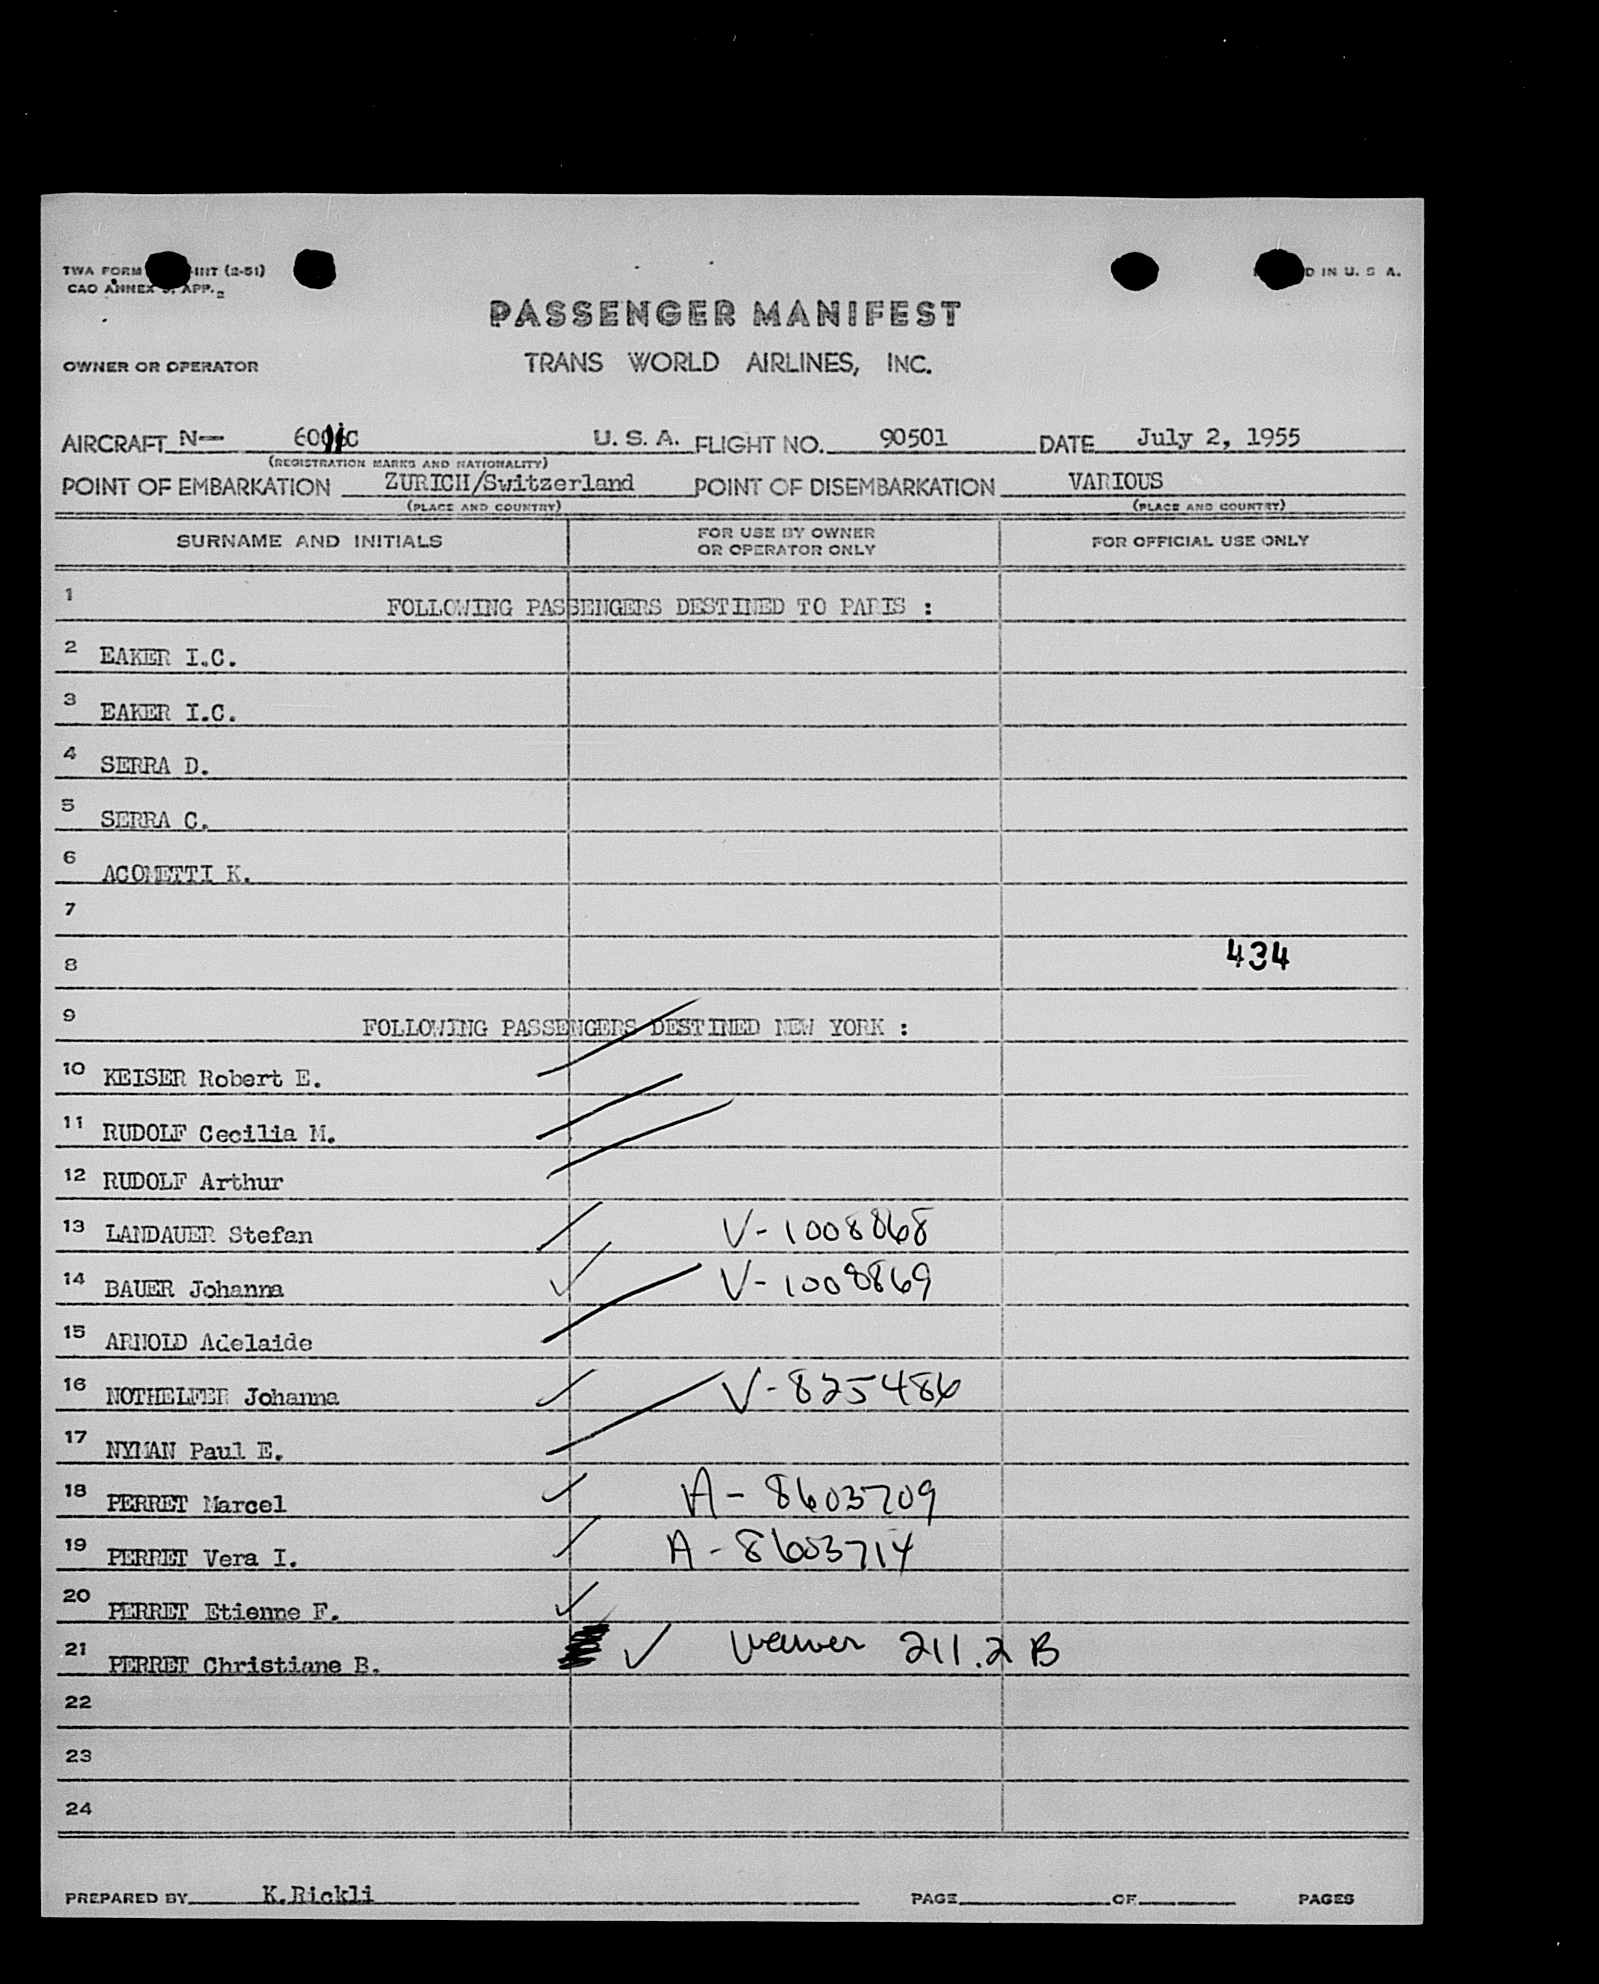 TWA FORM INT (2-51)
CAO ANNEX 9, APP. 2
D IN U. S. A.
PASSENGER MANIFEST
OWNER OR OPERATOR TRANS WORLD AIRLINES, INC.
AIRCRAFT N— U. S. A. FLIGHT NO. 90501 DATE July 2, 1955
(REGISTRATION MARKS AND NATIONALITY)
POINT OF EMBARKATION ZURICH/Switzerland POINT OF DISEMBARKATION VARIOUS
(PLACE AND COUNTRY) (PLACE AND COUNTRY)
SURNAME AND INITIALS FOR USE BY OWNER OR OPERATOR ONLY FOR OFFICIAL USE ONLY
1 FOLLOWING PASSENGERS DESTINED TO PARIS :
2 EAKER I.C.
3 EAKER I.C.
4 SERRA D.
5 SERRA C.
6 ACOMETTI K.
7
8 434
9 FOLLOWING PASSENGERS DESTINED NEW YORK :
10 KEISER Robert E.
11 RUDOLF Cecilia M.
12 RUDOLF Arthur
13 LANDAUER Stefan V-1008868
14 BAUER Johanna V-1008869
15 ARNOLD Adelaide
16 NOTHELFER Johanna V-825486
17 NYMAN Paul E.
18 PERRET Marcel A-8603709
19 PERRET Vera I. A-8603714
20 PERRET Etienne F.
21 PERRET Christiane B. waiver 211.2 B
22
23
24
PREPARED BY K.Rickli PAGE OF PAGES